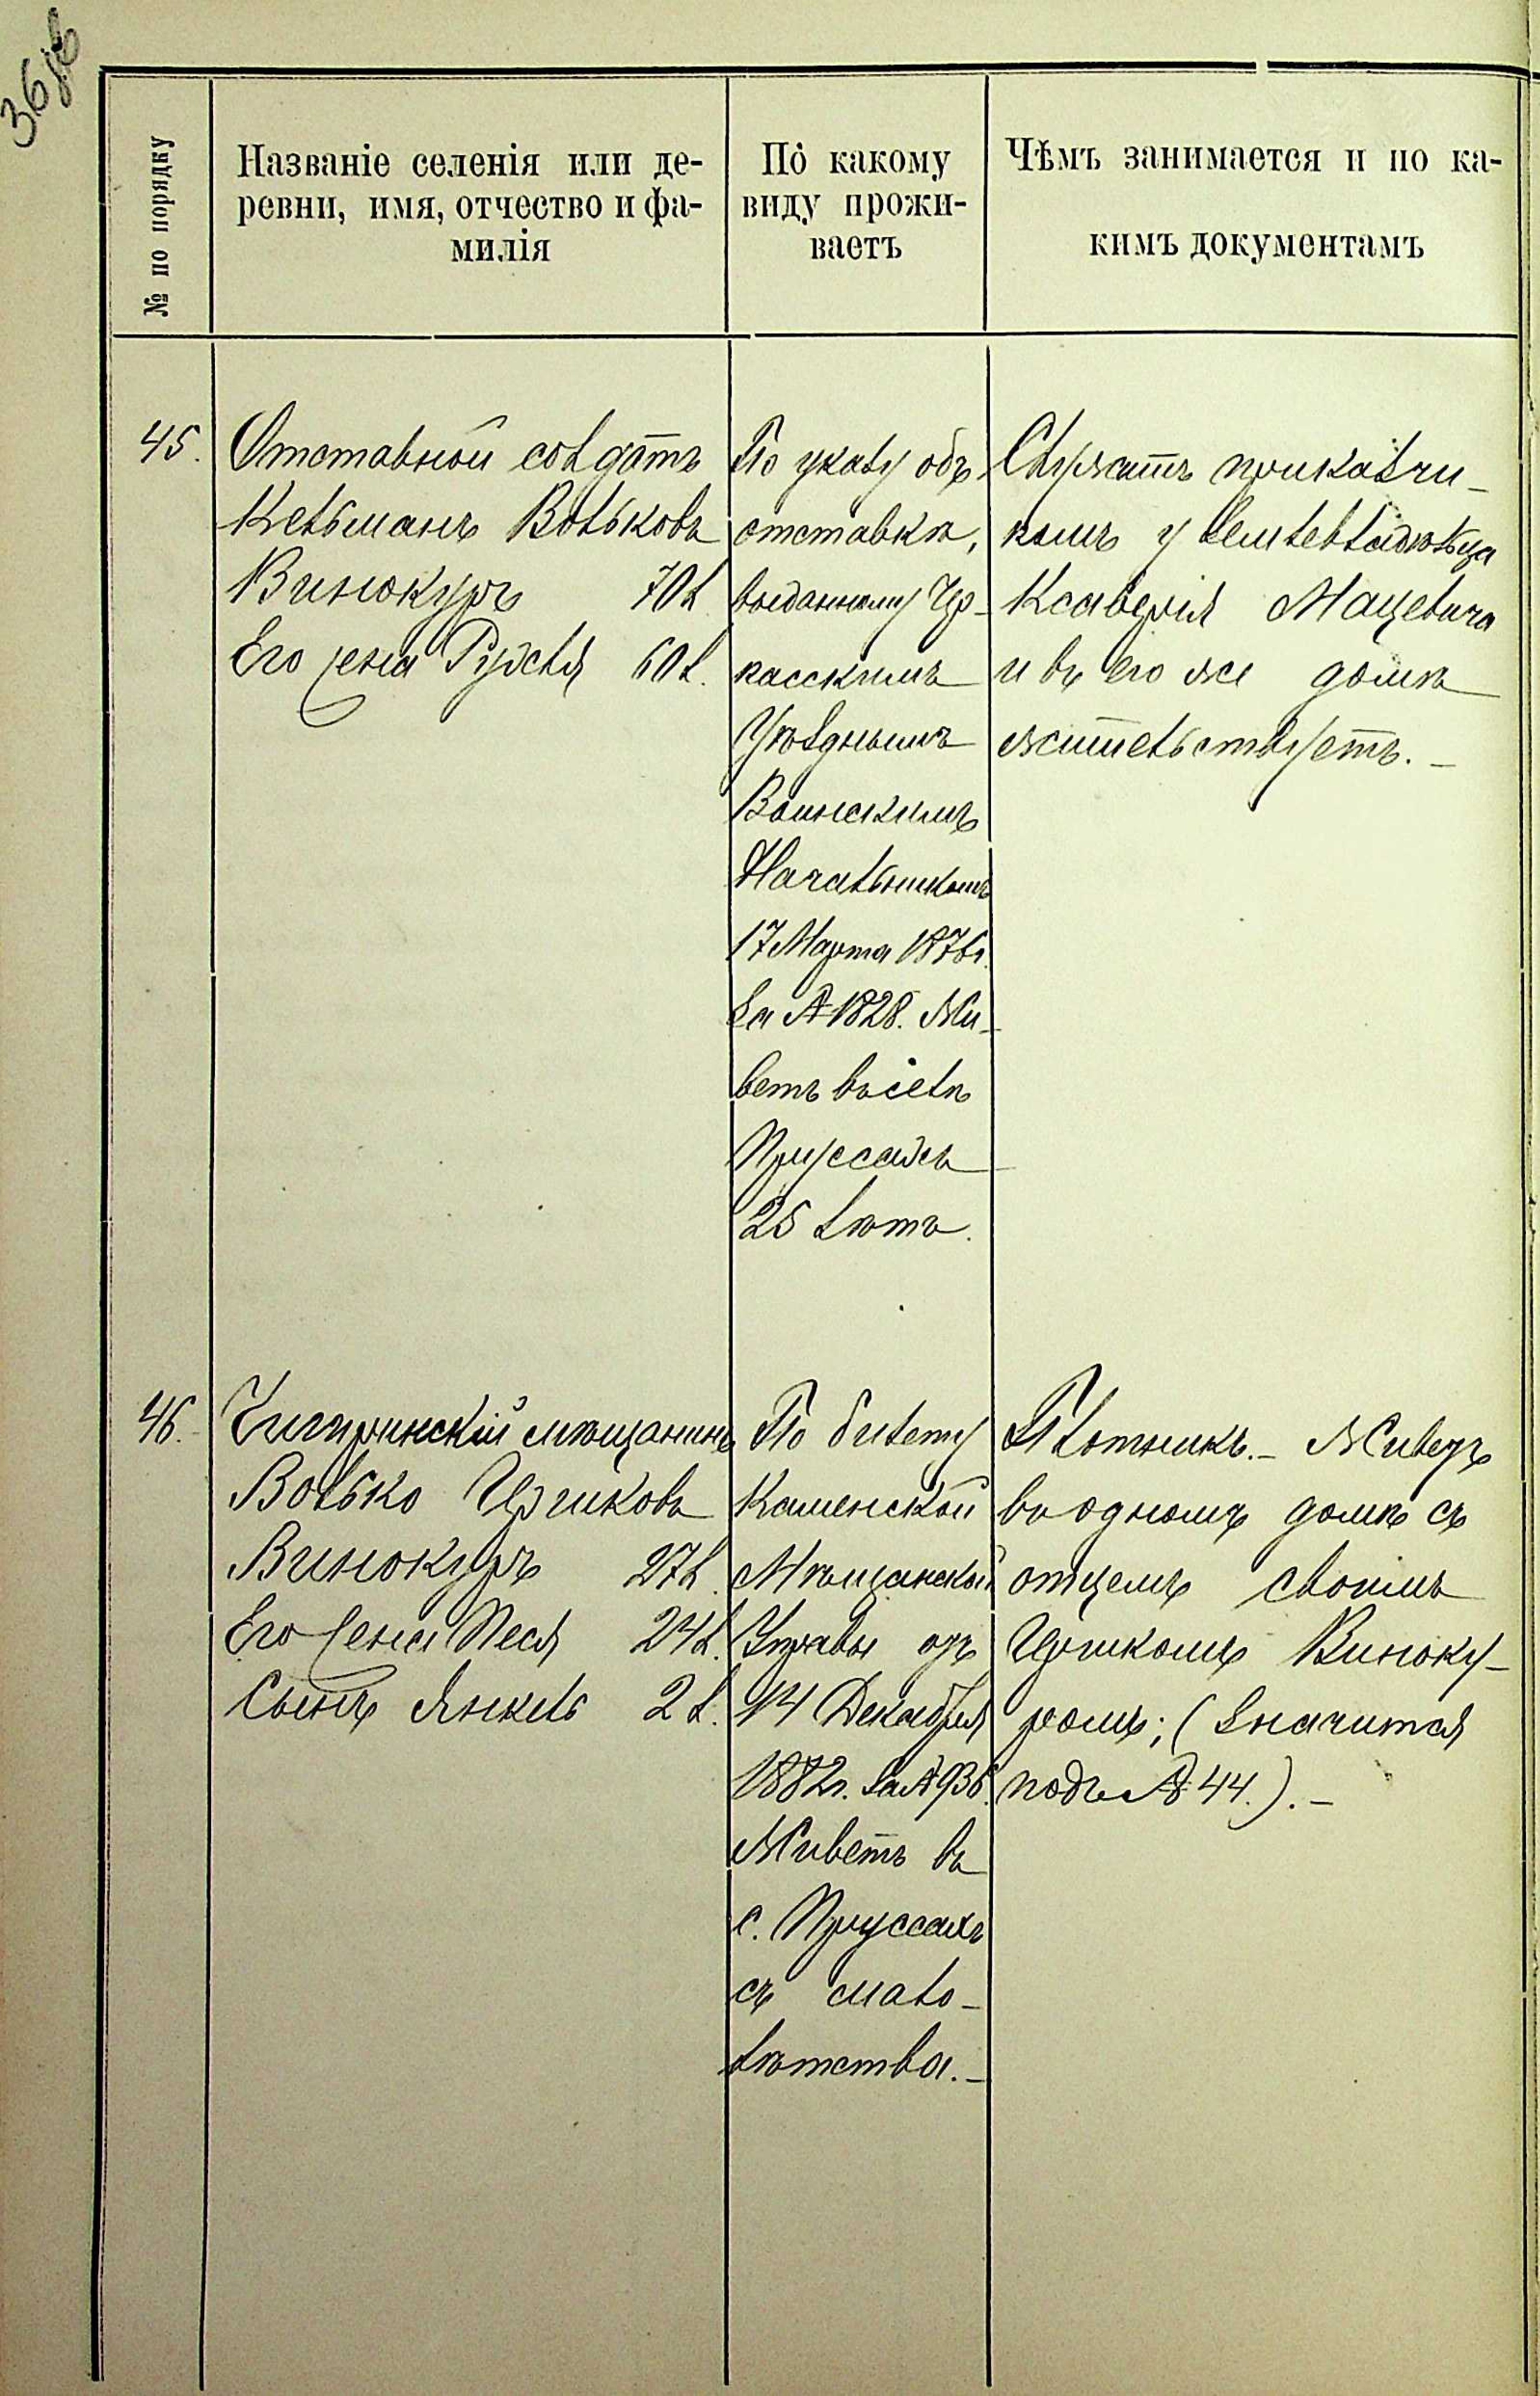 36
№ по порядку
Названіе селенія или де-
ревни, имя, отчество и фа-
милія
По какому
виду прожи-
ваетъ
Чѣмъ занимается и по ка-
кимъ документамъ
45.
Отставной солдатъ
Кельманъ Вольковъ
Винокуръ 70 л
Его жена Рухля 60 л.
По указу объ
отставкѣ,
выданному Чер-
касскимъ
Уѣзднымъ
Воинскимъ
Начальникомъ
17 Марта 1876 г.
за № 1828. Жи-
ветъ въ селѣ
Пруссахъ
25 лѣтъ.
Служитъ приказчи-
комъ у землевладѣльца
Ксаверія Мацевича
и въ его же домѣ
жительствуетъ. –
46.
Чигиринскій мѣщанинъ
Волько Ицковъ
Винокуръ 27 л.
Его жена Песя 24 л.
Сынъ Янкель 2 л.
По билету
Каменской
Мѣщанской
Управы отъ
14 Декабря
1882 г. за № 936.
Живетъ въ
с. Пруссахъ
съ мало-
лѣтства. –
Плотникъ. – Живетъ
въ одномъ домѣ съ
отцемъ своимъ
Ицкомъ Виноку-
ромъ; (значится
подъ № 44.). –